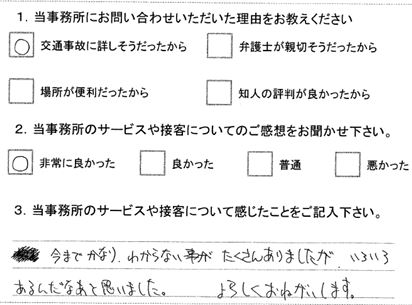 1. 当事務所にお問い合わせいただいた理由をお教えください
○ 交通事故に詳しそうだったから □ 弁護士が親切そうだったから
□ 場所が便利だったから □ 知人の評判が良かったから
2. 当事務所のサービスや接客についてのご感想をお聞かせ下さい。
○ 非常に良かった □ 良かった □ 普通 □ 悪かった
3. 当事務所のサービスや接客について感じたことをご記入下さい。
今までかなり、わからない事が たくさんありましたが、いろいろ
あるんだなあと思いました。 よろしくおねがいします。